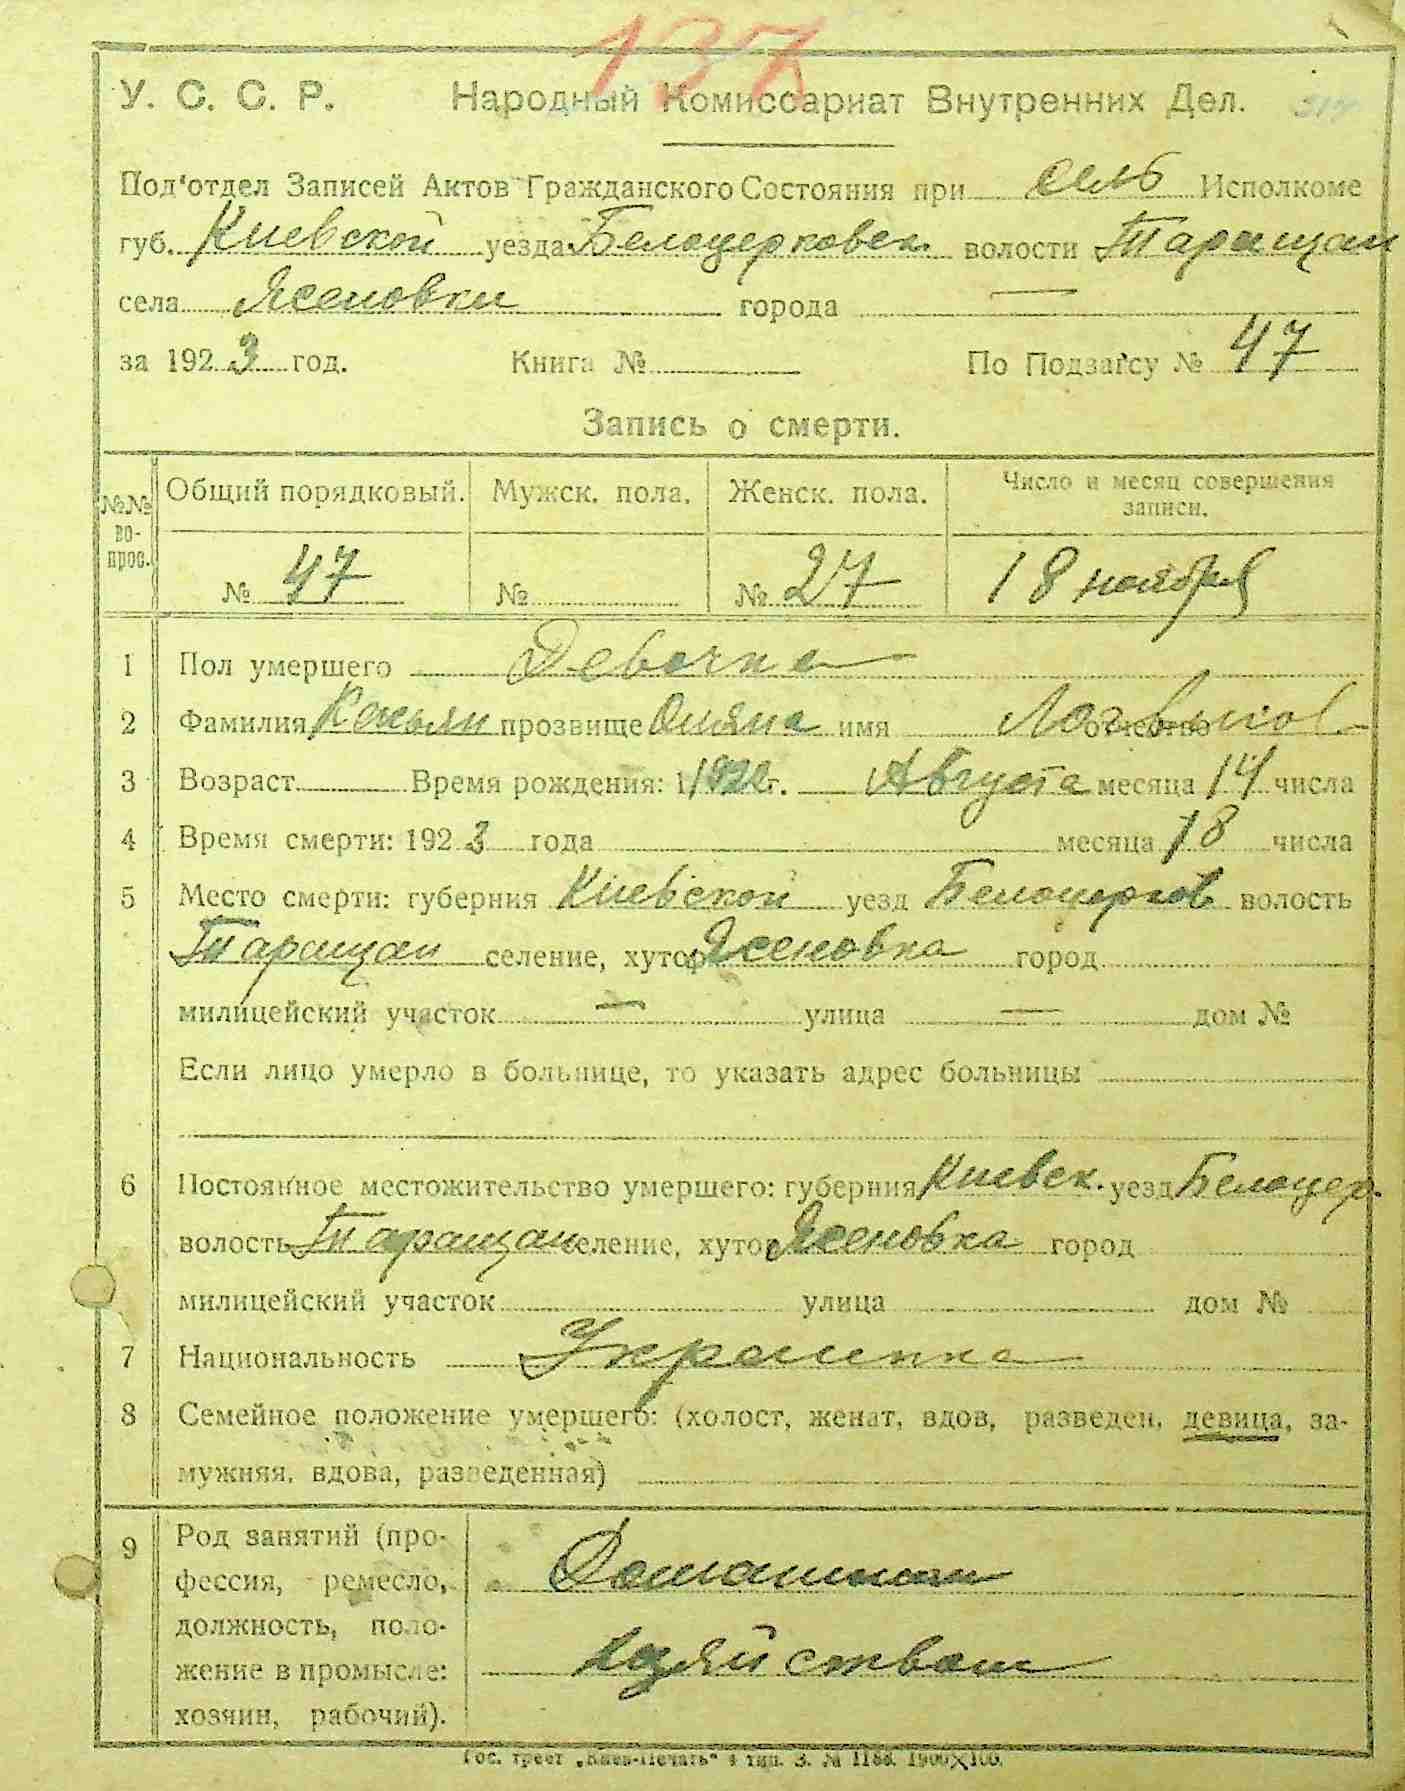 137
У. С. С. Р. Народный Комиссариат Внутренних Дел.
Под'отдел Записей Актов Гражданского Состояния при сель Исполкоме
губ. Киевской уезда Белоцерковск. волости Таращан
села Ясеновки города —
за 1923 год. Книга № По Подзагсу № 47
Запись о смерти.
№№ во- прос. Общий порядковый. Мужск. пола. Женск. пола. Число и месяц совершения записи.
№ 47 № № 27 18 ноября
1 Пол умершего Девочка
2 Фамилия прозвище имя отчество
3 Возраст Время рождения: г. Августа месяца 14 числа
4 Время смерти: 1923 года месяца 18 числа
5 Место смерти: губерния Киевской уезд Белоцерков волость
Таращан селение, хутор Ясеновка город
милицейский участок — улица — дом №
Если лицо умерло в больнице, то указать адрес больницы
6 Постоянное местожительство умершего: губерния Киевск. уезд Белоцер.
волость Таращан селение, хутор Ясеновка город
милицейский участок улица дом №
7 Национальность Украинка
8 Семейное положение умершего: (холост, женат, вдов, разведен, девица, за-
мужняя, вдова, разведенная)
9 Род занятий (про-
фессия, ремесло, Домашним
должность, поло-
жение в промысле: хозяйством
хозяин, рабочий).
Гос. трест „Киев-Печать“ 4 тип. З. №